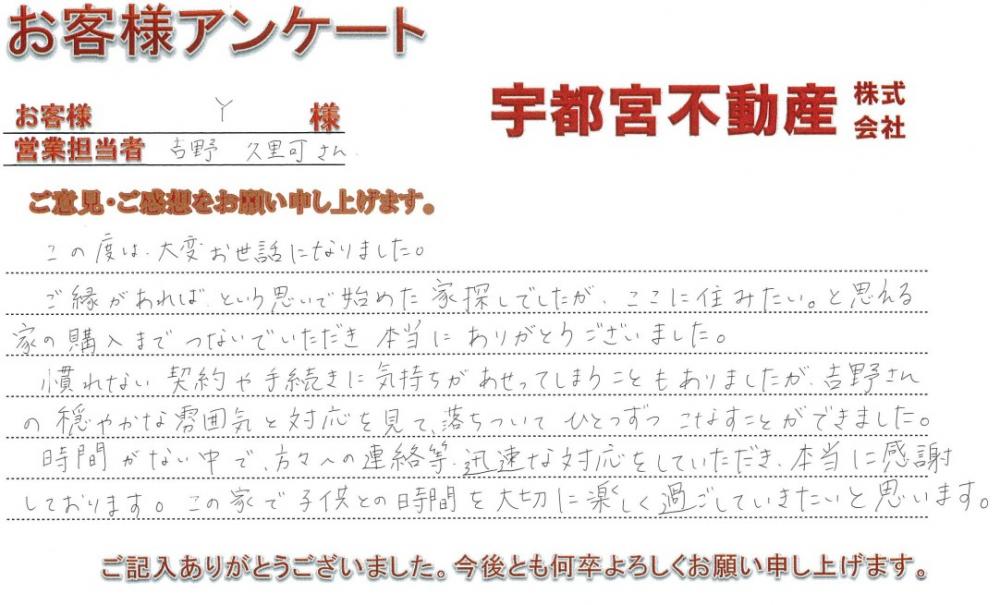 お客様アンケート
お客様 Y 様
宇都宮不動産 株式会社
営業担当者 吉野 久里可さん
ご意見・ご感想をお願い申し上げます。
この度は、大変お世話になりました。
ご縁があれば、という思いで始めた家探しでしたが、ここに住みたい。と思える
家の購入までつないでいただき本当にありがとうございました。
慣れない契約や手続きに気持ちがあせってしまうこともありましたが、吉野さん
の穏やかな雰囲気と対応を見て、落ちついてひとつずつこなすことができました。
時間がない中で、方々への連絡等、迅速な対応をしていただき、本当に感謝
しております。この家で子供との時間を大切に楽しく過ごしていきたいと思います。
ご記入ありがとうございました。今後とも何卒よろしくお願い申し上げます。